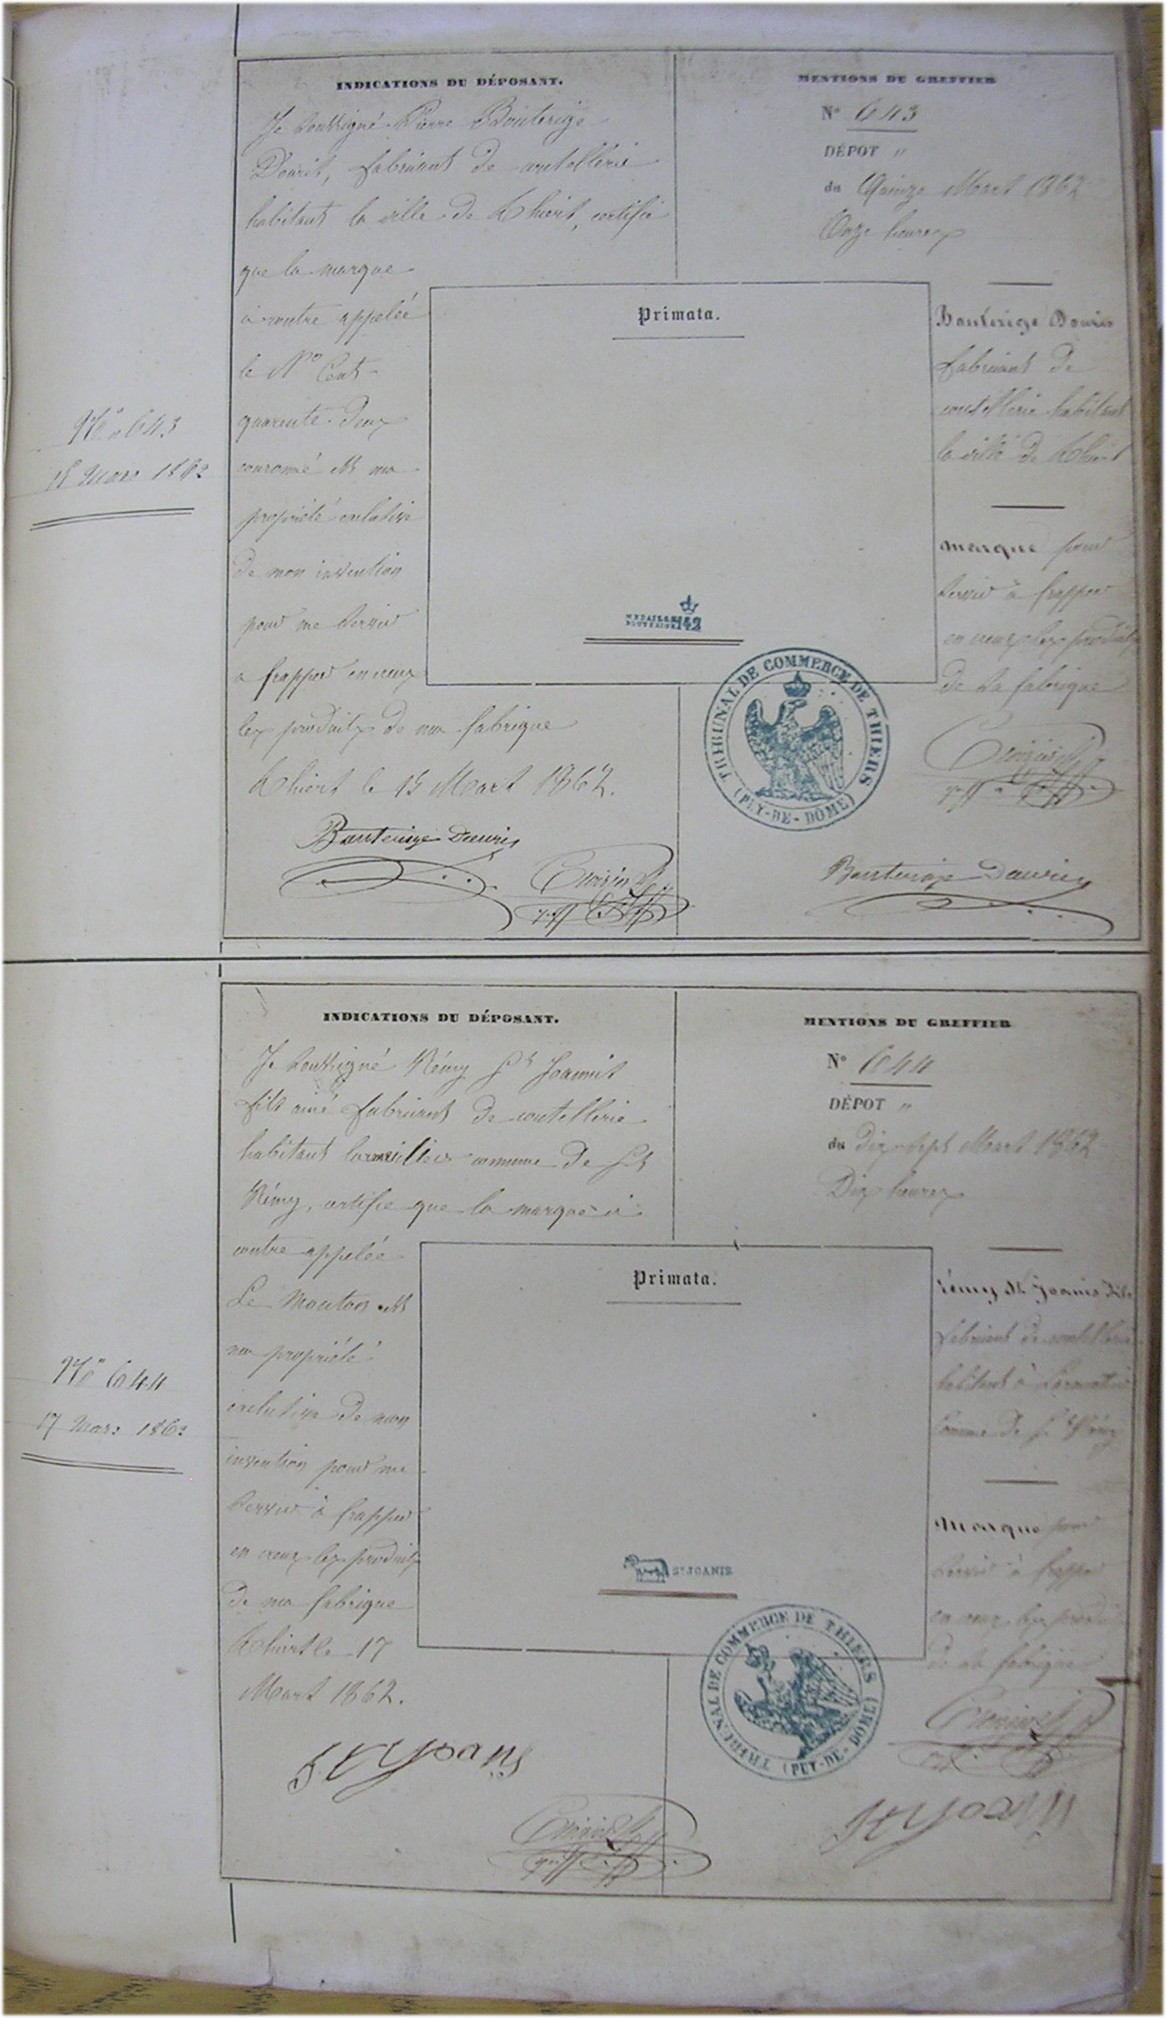 INDICATIONS DU DÉPOSANT.
Je soussigné Pierre Bouterige
Douris, fabricant de coutellerie
habitant la ville de Thiers, certifie
que la marque
ci-contre appelée
le Nro Cent
quarente deux
couronné est ma
propriété exclusive
de mon invention
pour me servir
a frapper en creux
les produits de ma fabrique
Thiers le 15 Mars 1862.
MENTIONS DU GREFFIER
N° 643
DÉPOT "
du Quinze Mars 1862
Onze heures
Primata.
MEDAILLE
142
fabricant de
coutellerie habitant
la ville de Thiers
marque pour
servir à frapper
en creux les produits
de sa fabrique
TRIBUNAL DE COMMERCE DE THIERS
(PUY-DE-DOME)
No 643
15 Mars 1862
INDICATIONS DU DÉPOSANT.
Je soussigné Rémy St Joannis
fils ainé fabricant de coutellerie
habitant commune de St
Rémy, certifie que la marque ci
contre appelée
Le Mouton est
ma propriété
exclusive de mon
invention pour me
servir à frapper
en creux les produits
de ma fabrique
Thiers le 17
Mars 1862.
St Joanis
MENTIONS DU GREFFIER
N° 644
DÉPOT "
du Dix-sept Mars 1862
Dix heures
Primata.
ST JOANIS
rémy St Joanis fils
fabricant de coutellerie
habitant à
Comme de St Rémy
Marque pour
servir à frapper
en creux les produits
de sa fabrique
TRIBUNAL DE COMMERCE DE THIERS
(PUY-DE-DOME)
St Joanis
No 644
17 Mars 1862